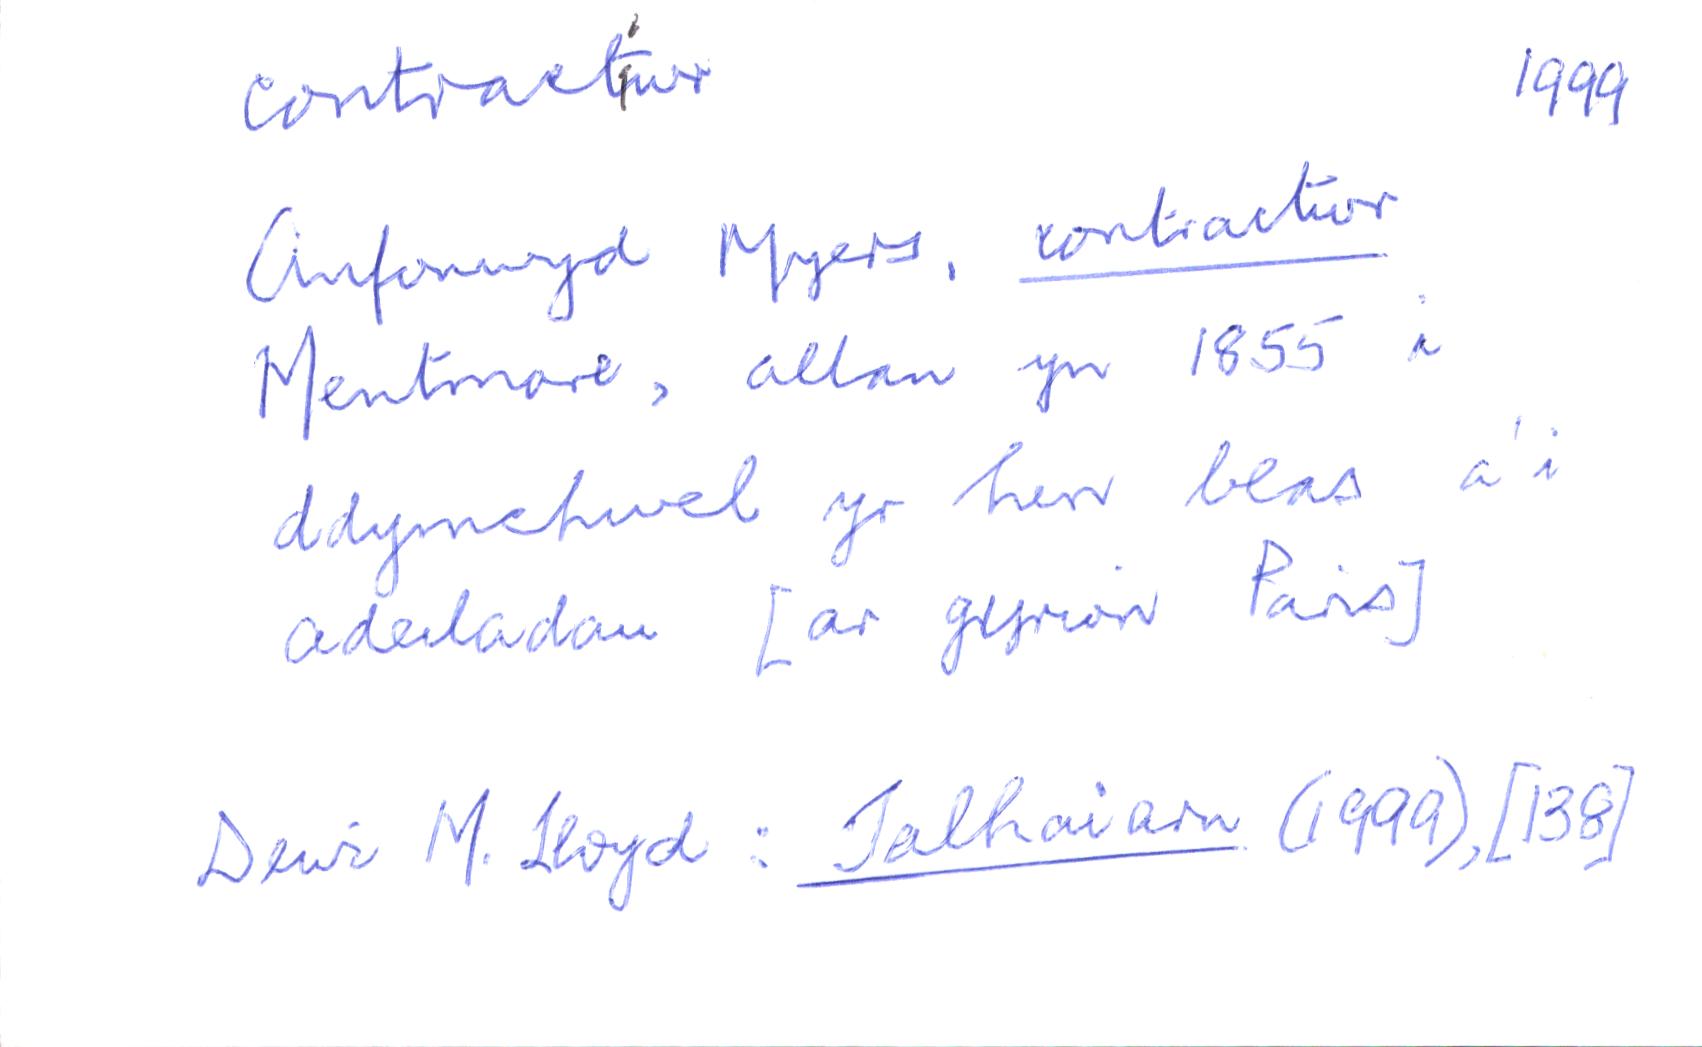 contractiwr 1999
Anfonwyd Myers, contractiwr
Mentmore, allan yn 1855 i
ddymchwel yr hen blas a'i
adeiladau [ar gyrion Paris]
Dewi M. Lloyd : Talhaiarn (1999), [138]